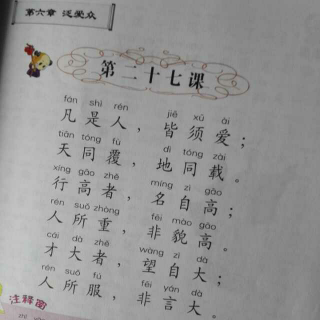 第六章 泛爱众
第二十七课
fán shì rén jiē xū ài
凡是人，皆须爱；
tiān tóng fù dì tóng zài
天同覆，地同载。
xíng gāo zhě míng zì gāo
行高者，名自高；
rén suǒ zhòng fēi mào gāo
人所重，非貌高。
cái dà zhě wàng zì dà
才大者，望自大；
rén suǒ fú fēi yán dà
人所服，非言大。
注释画